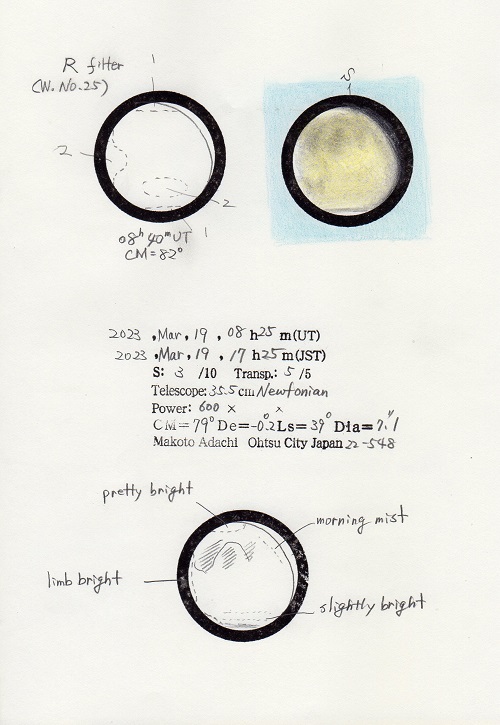 R filter
(W. No. 25)
1
S
2
2
1
08h 40m UT
CM=82°
2023 , Mar, 19 , 08 h 25 m(UT)
2023 , Mar, 19 , 17 h 25 m(JST)
S: 3 /10 Transp.: 5 /5
Telescope: 35.5 cm Newtonian
Power: 600 × ×
CM=79° De=-0.2° Ls=39° Dia=7.1"
Makoto Adachi Ohtsu City Japan 22-548
pretty bright
morning mist
limb bright
slightly bright